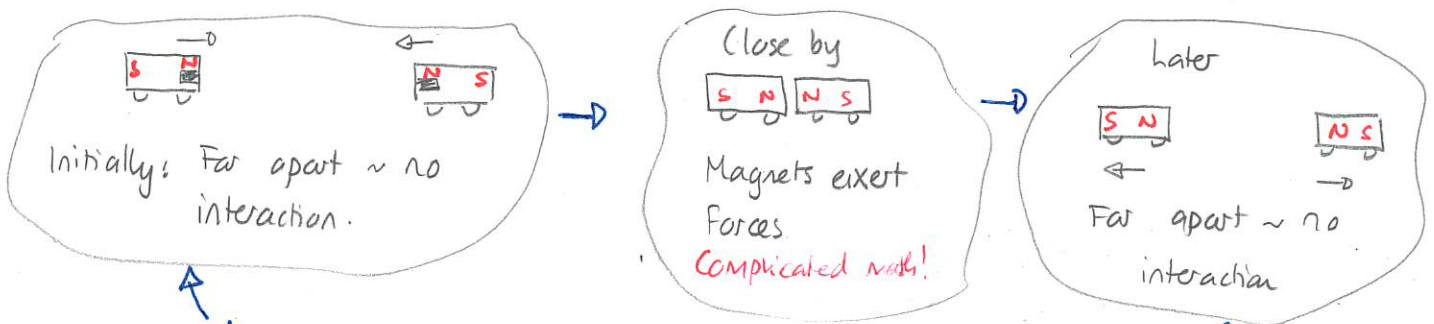 S N
N S
Initially: Far apart ~ no
interaction.
Close by
S N N S
Magnets eixert
Forces
Complicated math!
Later
S N
N S
Far apart ~ no
interaction